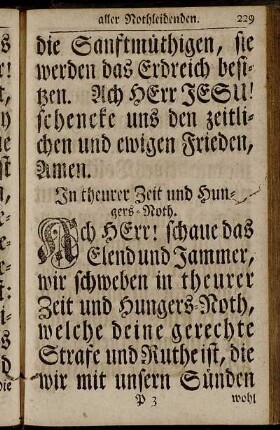 aller Nothleidenden. 229
die Sanftmüthigen, sie
werden das Erdreich besi-
tzen. Ach HErr JESU!
schencke uns den zeitli-
chen und ewigen Frieden,
Amen.
In theurer Zeit und Hun-
gers-Noth.
Ach HErr! schaue das
Elend und Jammer,
wir schweben in theurer
Zeit und Hungers-Noth,
welche deine gerechte
Strafe und Ruthe ist, die
wir mit unsern Sünden
P 3 wohl